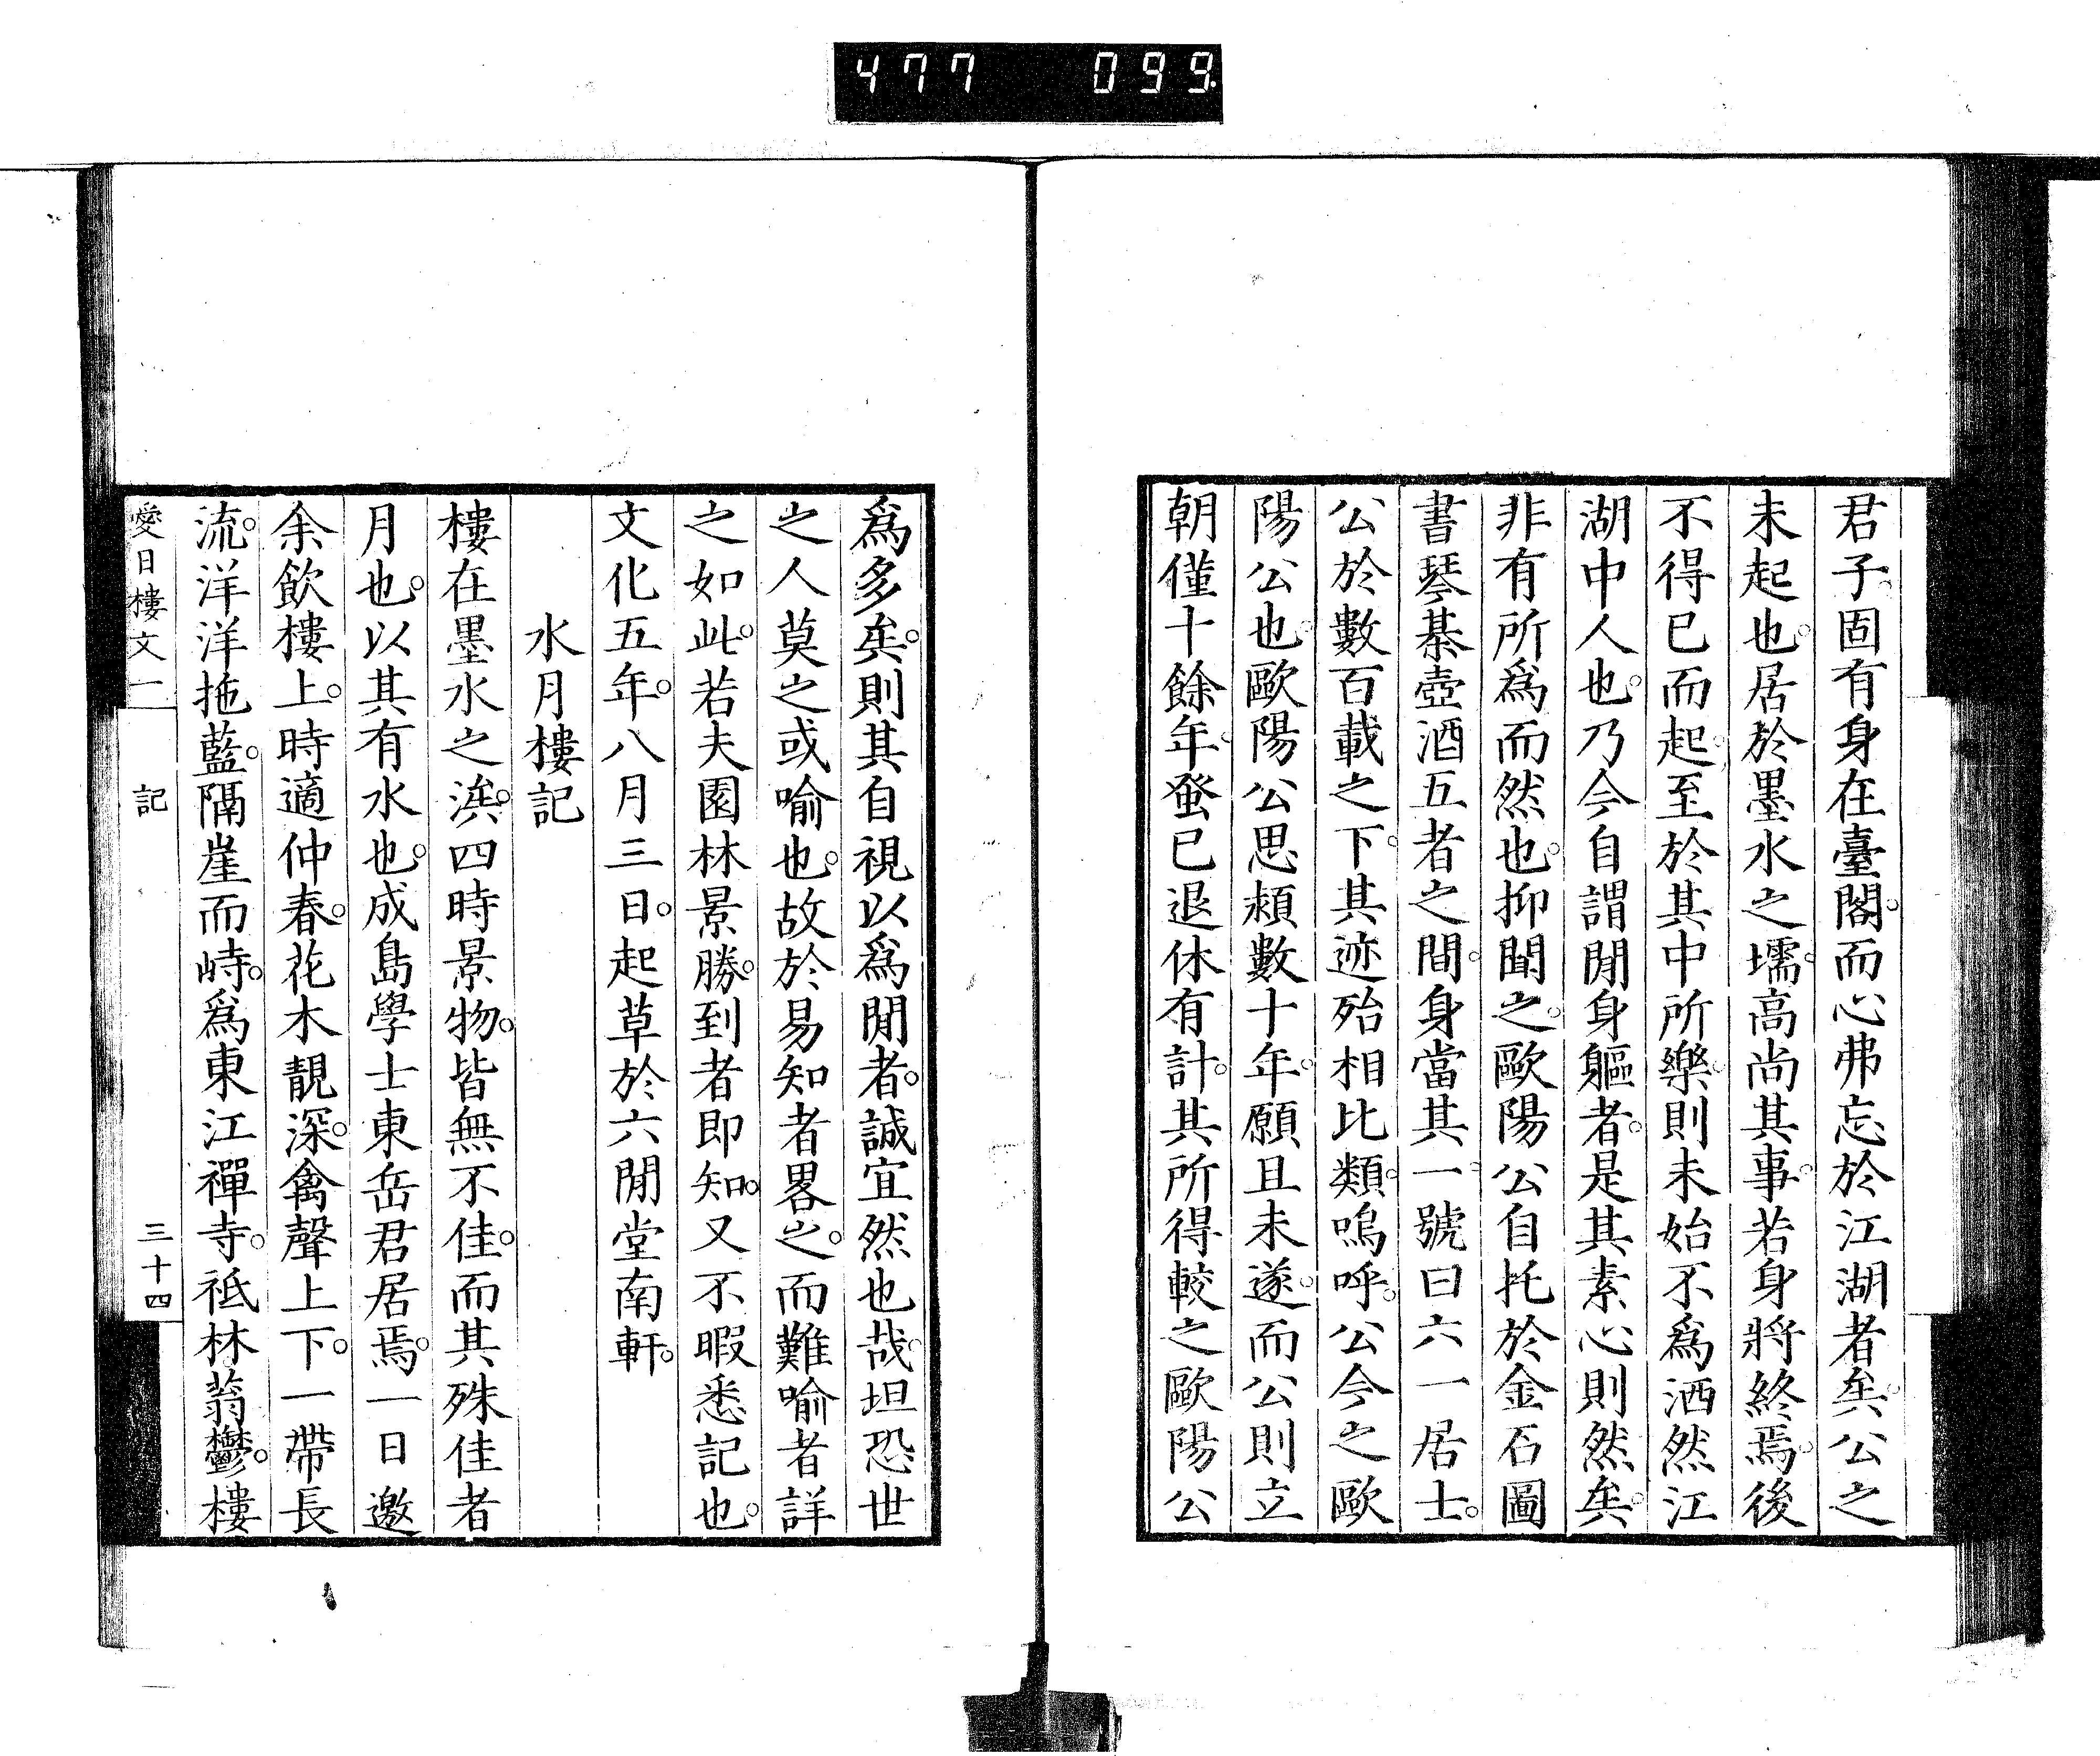 477 099
君子。固有身在臺閣。而心弗忘於江湖者矣。公之
未起也。居於墨水之壖。高尚其事。若身將終焉。後
不得已而起。至於其中所樂。則未始不爲洒然江
湖中人也。乃今自謂閒身軀者。是其素心則然矣。
非有所爲而然也。抑聞之。歐陽公自托於金石圖
書琴棊壺酒五者之間。身當其一。號曰六一居士。
公於數百載之下。其迹殆相比類。嗚呼。公今之歐
陽公也。歐陽公思潁數十年。願且未遂。而公則立
朝僅十餘年。蚤已退休有計。其所得較之歐陽公
爲多矣。則其自視以爲閒者。誠宜然也哉。坦恐世
之人莫之或喻也。故於易知者畧之。而難喻者詳
之如此。若夫園林景勝。到者即知。又不暇悉記也。
文化五年。八月三日。起草於六閒堂南軒。
水月樓記
樓在墨水之濱。四時景物。皆無不佳。而其殊佳者
月也。以其有水也。成島學士東岳君居焉。一日邀
余飲樓上。時適仲春。花木靚深。禽聲上下。一帶長
流。洋洋拖藍。隔崖而峙。爲東江禪寺。祗林蓊鬱。樓
愛日樓文二 記 三十四